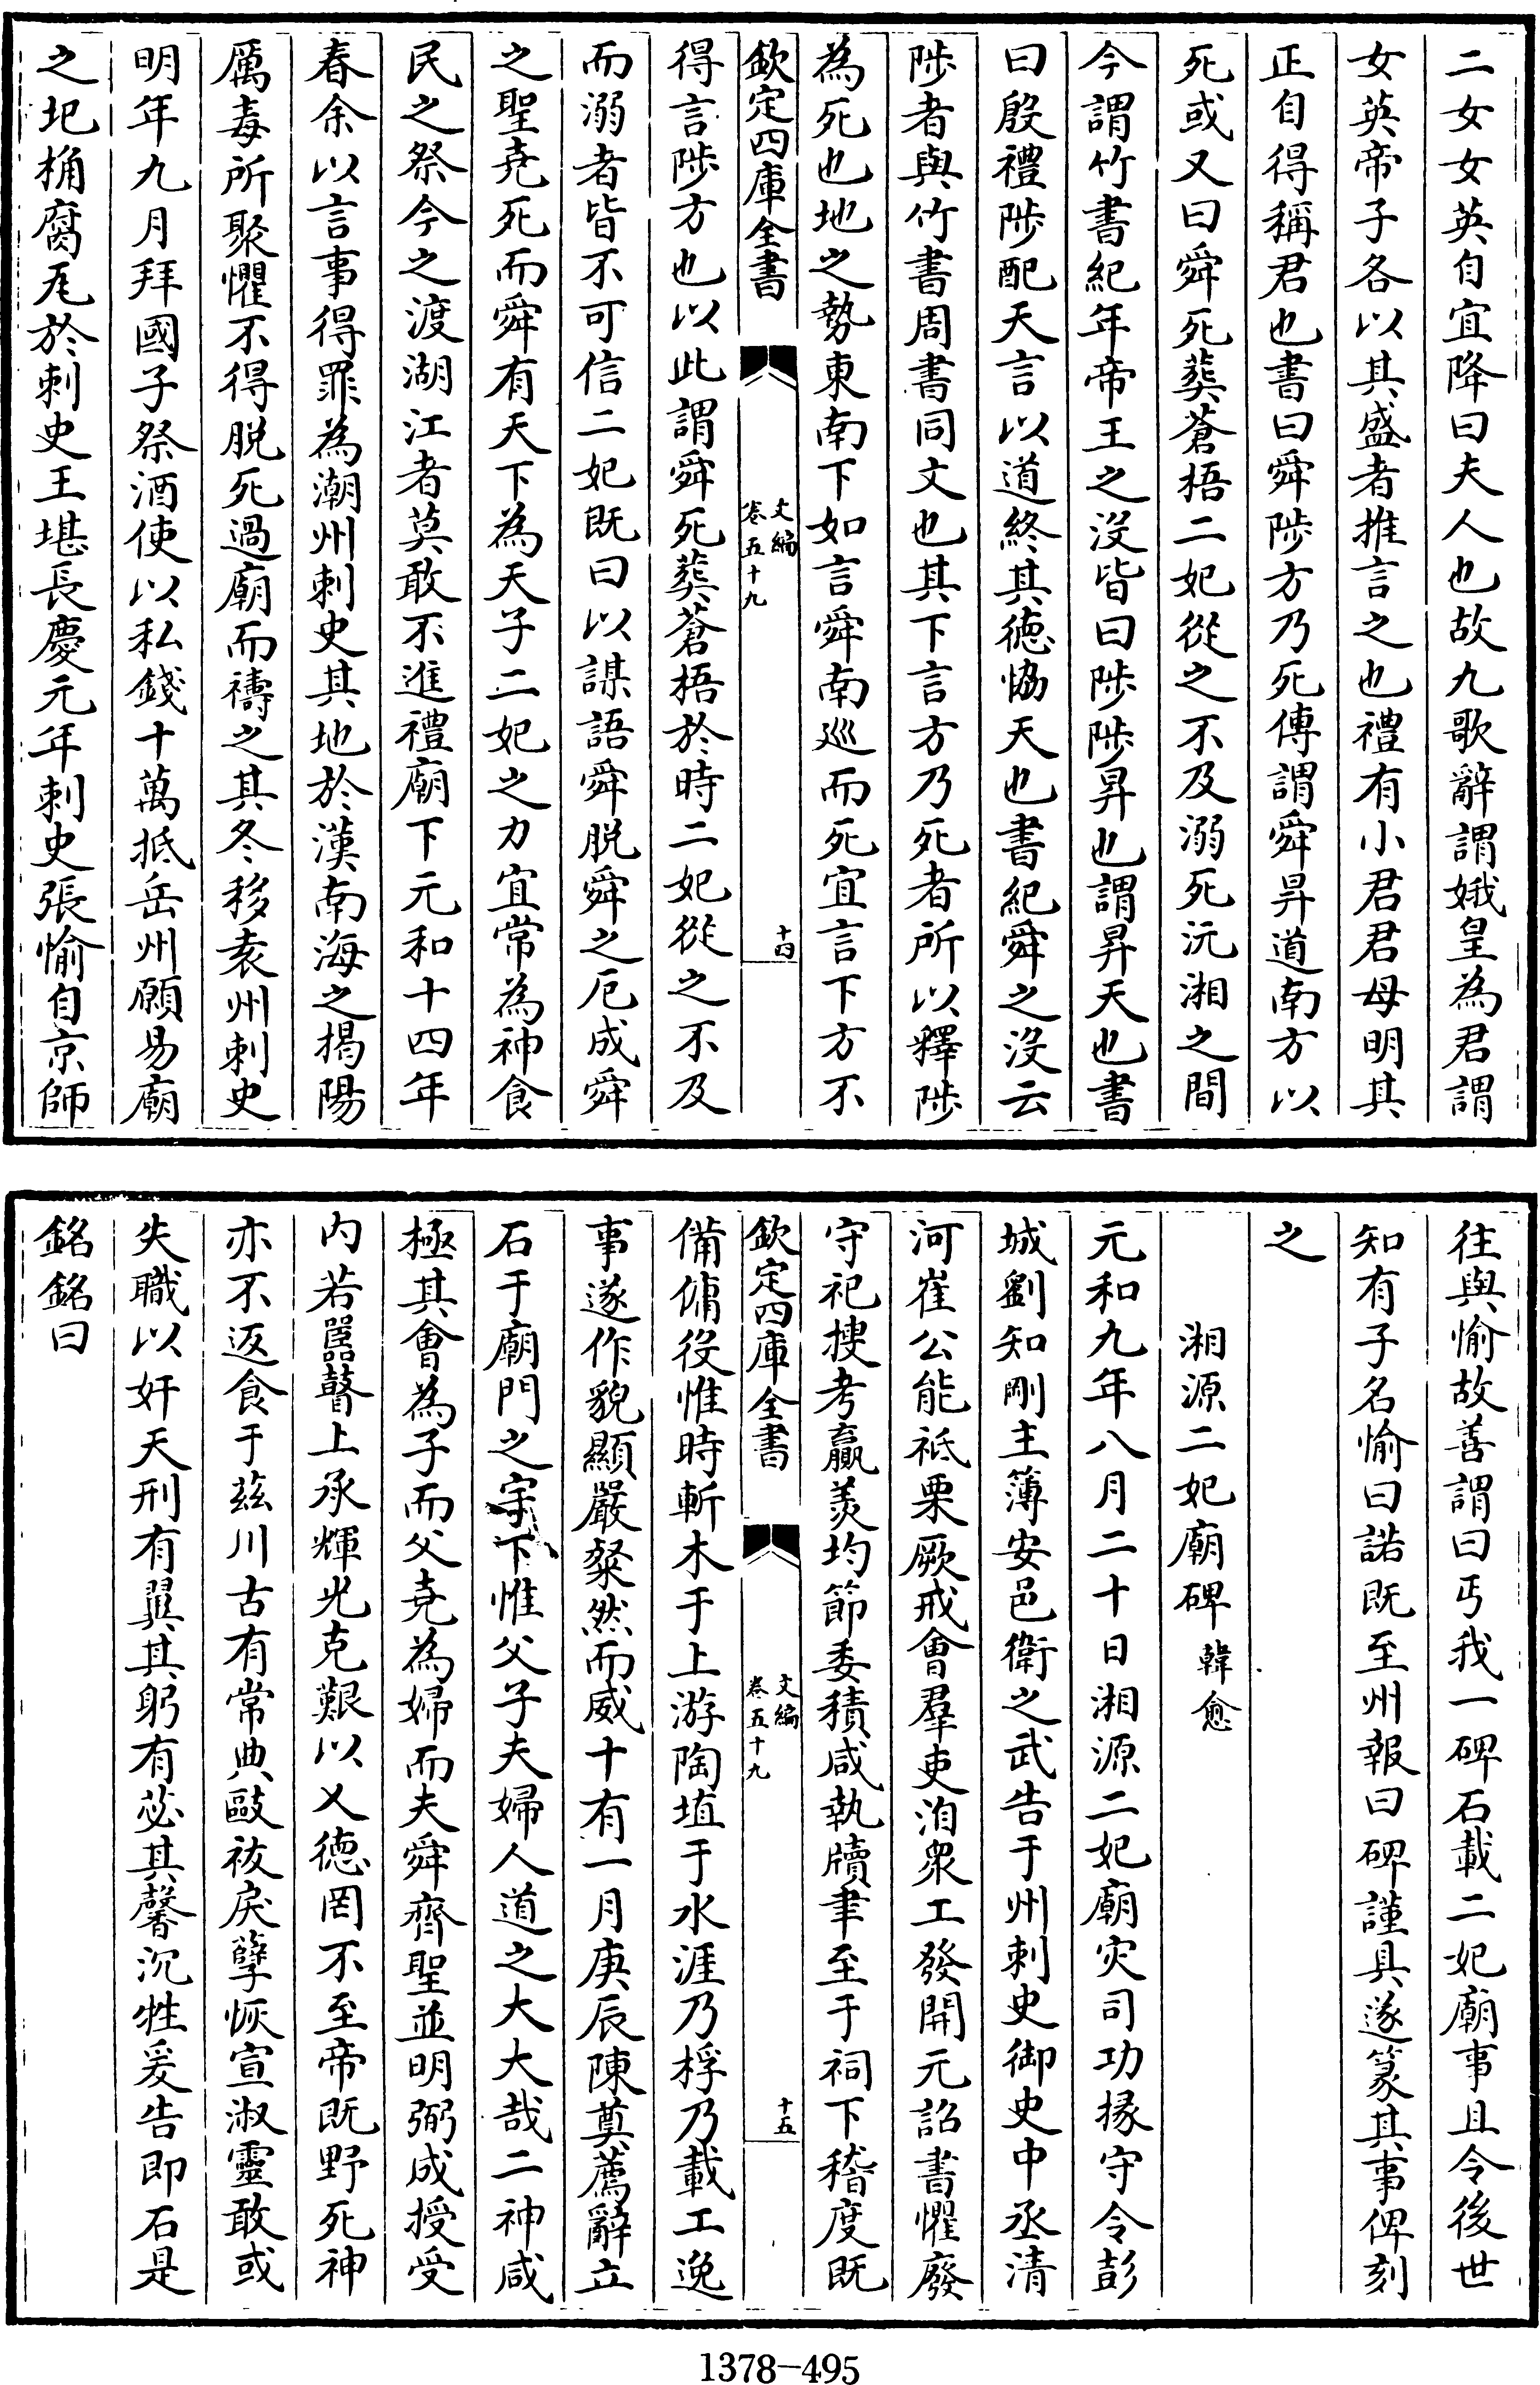 二女女英自宜降曰夫人也故九歌辭謂娥皇為君謂
女英帝子各以其盛者推言之也禮有小君君母明其
正自得稱君也書曰舜陟方乃死傳謂舜昇道南方以
死或又曰舜死葬蒼梧二妃從之不及溺死沅湘之間
今謂竹書紀年帝王之沒皆曰陟陟昇也謂昇天也書
曰殷禮陟配天言以道終其德恊天也書紀舜之沒云
陟者與竹書周書同文也其下言方乃死者所以釋陟
為死也地之勢東南下如言舜南巡而死宜言下方不
欽定四庫全書
文編
卷五十九
十四
得言陟方也以此謂舜死葬蒼梧於時二妃從之不及
而溺者皆不可信二妃既曰以謀語舜脫舜之厄成舜
之聖堯死而舜有天下為天子二妃之力宜常為神食
民之祭今之渡湖江者莫敢不進禮廟下元和十四年
春余以言事得罪為潮州刺史其地於漢南海之揭陽
厲毒所聚懼不得脫死過廟而禱之其冬移袁州刺史
明年九月拜國子祭酒使以私錢十萬抵岳州願易廟
之圯桷腐瓦於刺史王堪長慶元年刺史張愉自京師
往與愉故善謂曰丐我一碑石載二妃廟事且令後世
知有子名愉曰諾既至州報曰碑謹具遂篆其事俾刻
之
湘源二妃廟碑 韓愈
元和九年八月二十日湘源二妃廟灾司功掾守令彭
城劉知剛主簿安邑衛之武告于州刺史御史中丞清
河崔公能祗栗厥戒會羣吏洎衆工發開元詔書懼廢
守祀搜考贏羨均節委積咸執牘聿至于祠下稽度既
欽定四庫全書
文編
卷五十九
十五
備傭役惟時斬木于上游陶埴于水涯乃桴乃載工逸
事遂作貌顯嚴粲然而威十有一月庚辰陳奠薦辭立
石于廟門之宇下惟父子夫婦人道之大大哉二神咸
極其會為子而父堯為婦而夫舜齊聖並明弼成授受
内若嚚瞽上承輝光克艱以乂德罔不至帝既野死神
亦不返食于茲川古有常典敺祓戾孽恢宣淑靈敢或
失職以奸天刑有翼其躬有苾其馨沉牲爰告即石是
銘銘曰
1378-495